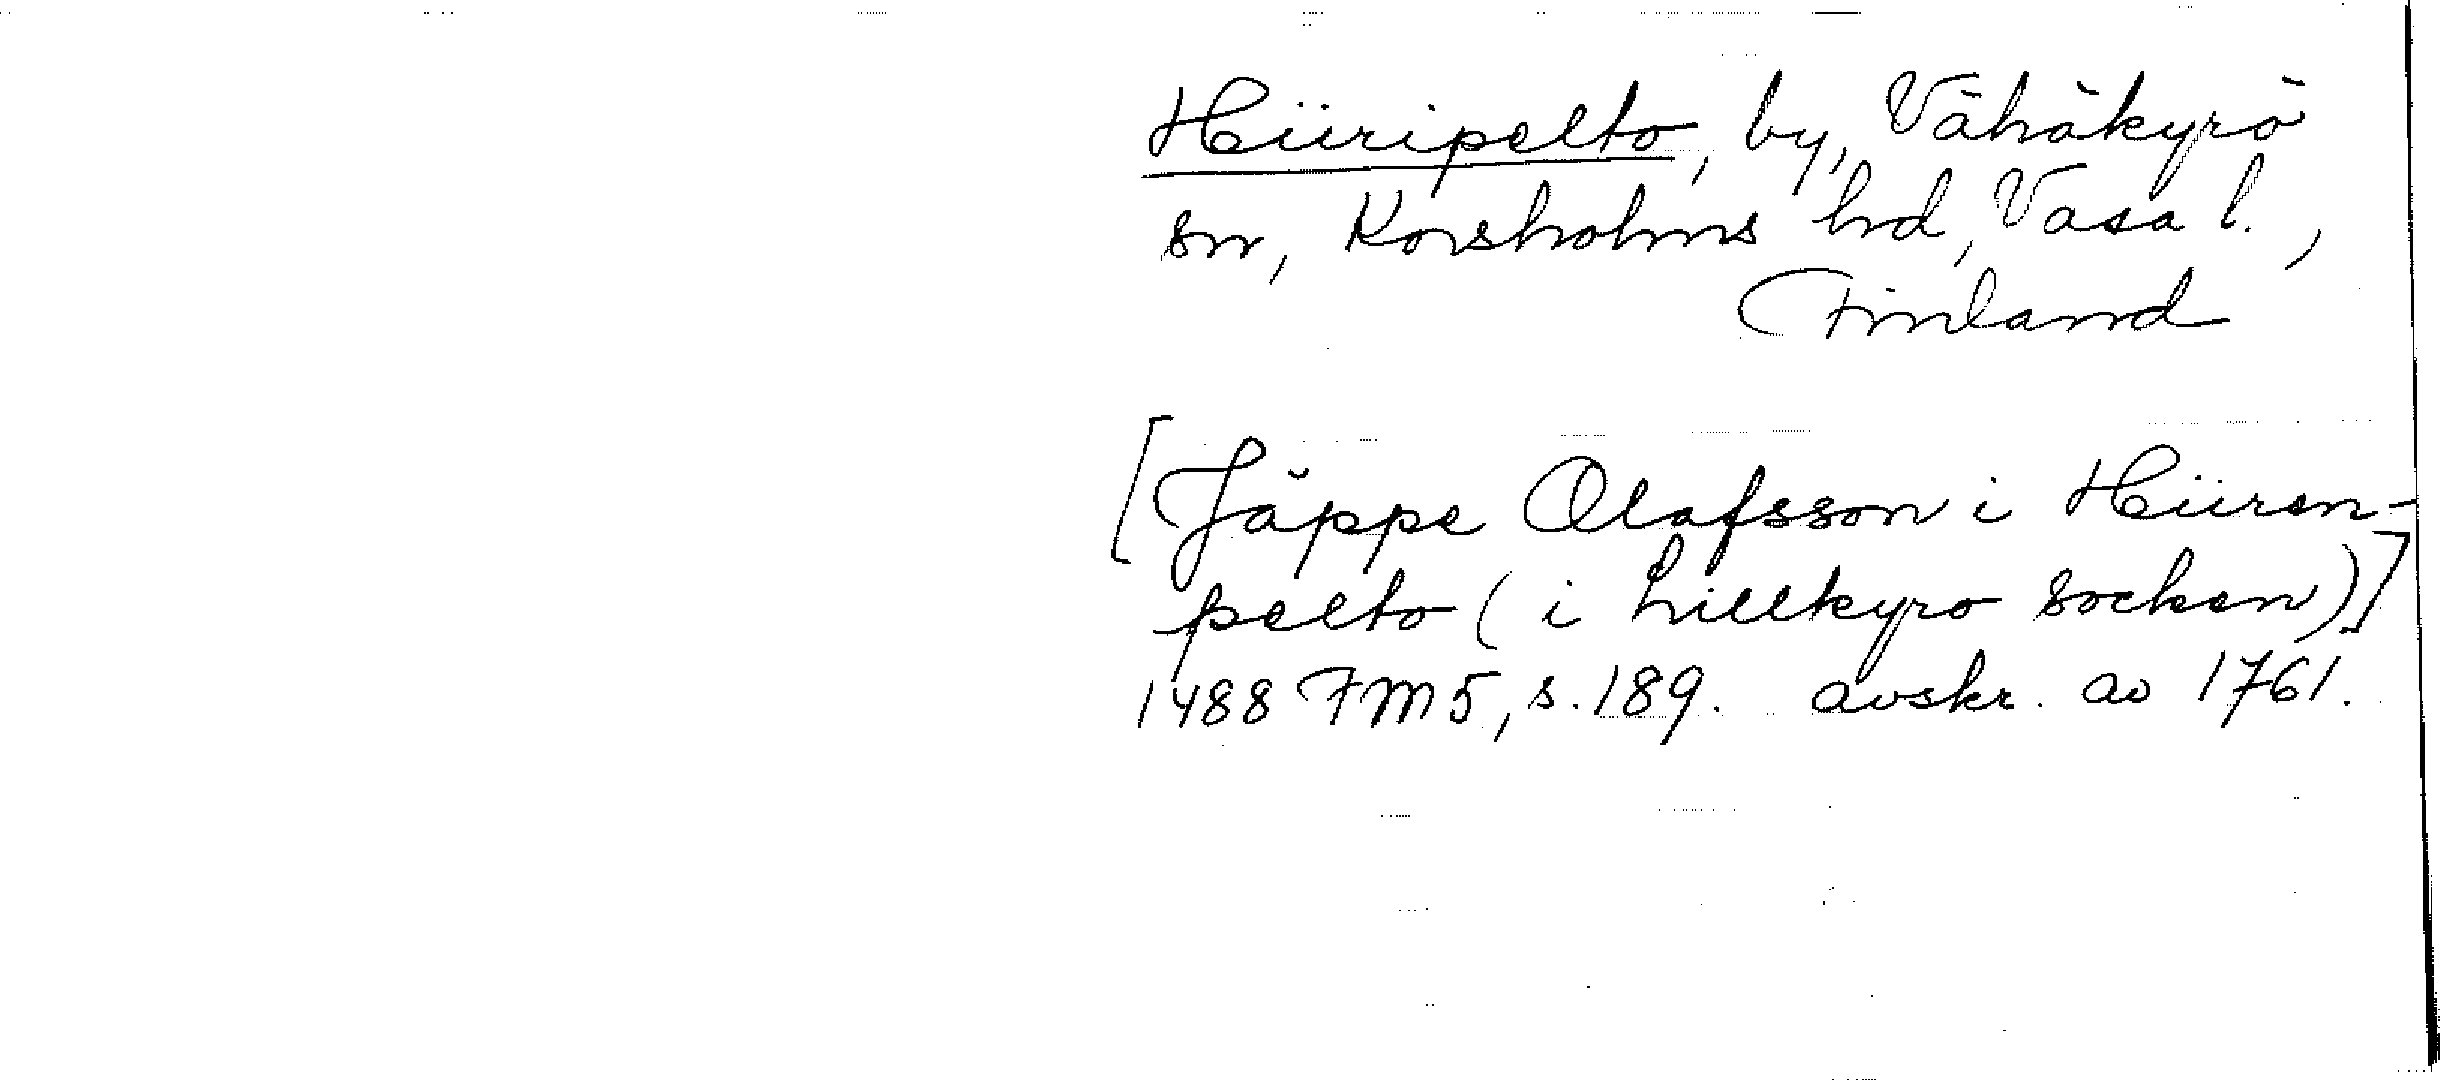 Hiiripelto, by, Vähäkyrö
sn, Korsholms hd, Vasa l.,
Finland
[Jäppe Olafsson i Hiiren-
pelto (i Lillkyro socken)]
1488 FM5, s. 189. avskr. av 1761.